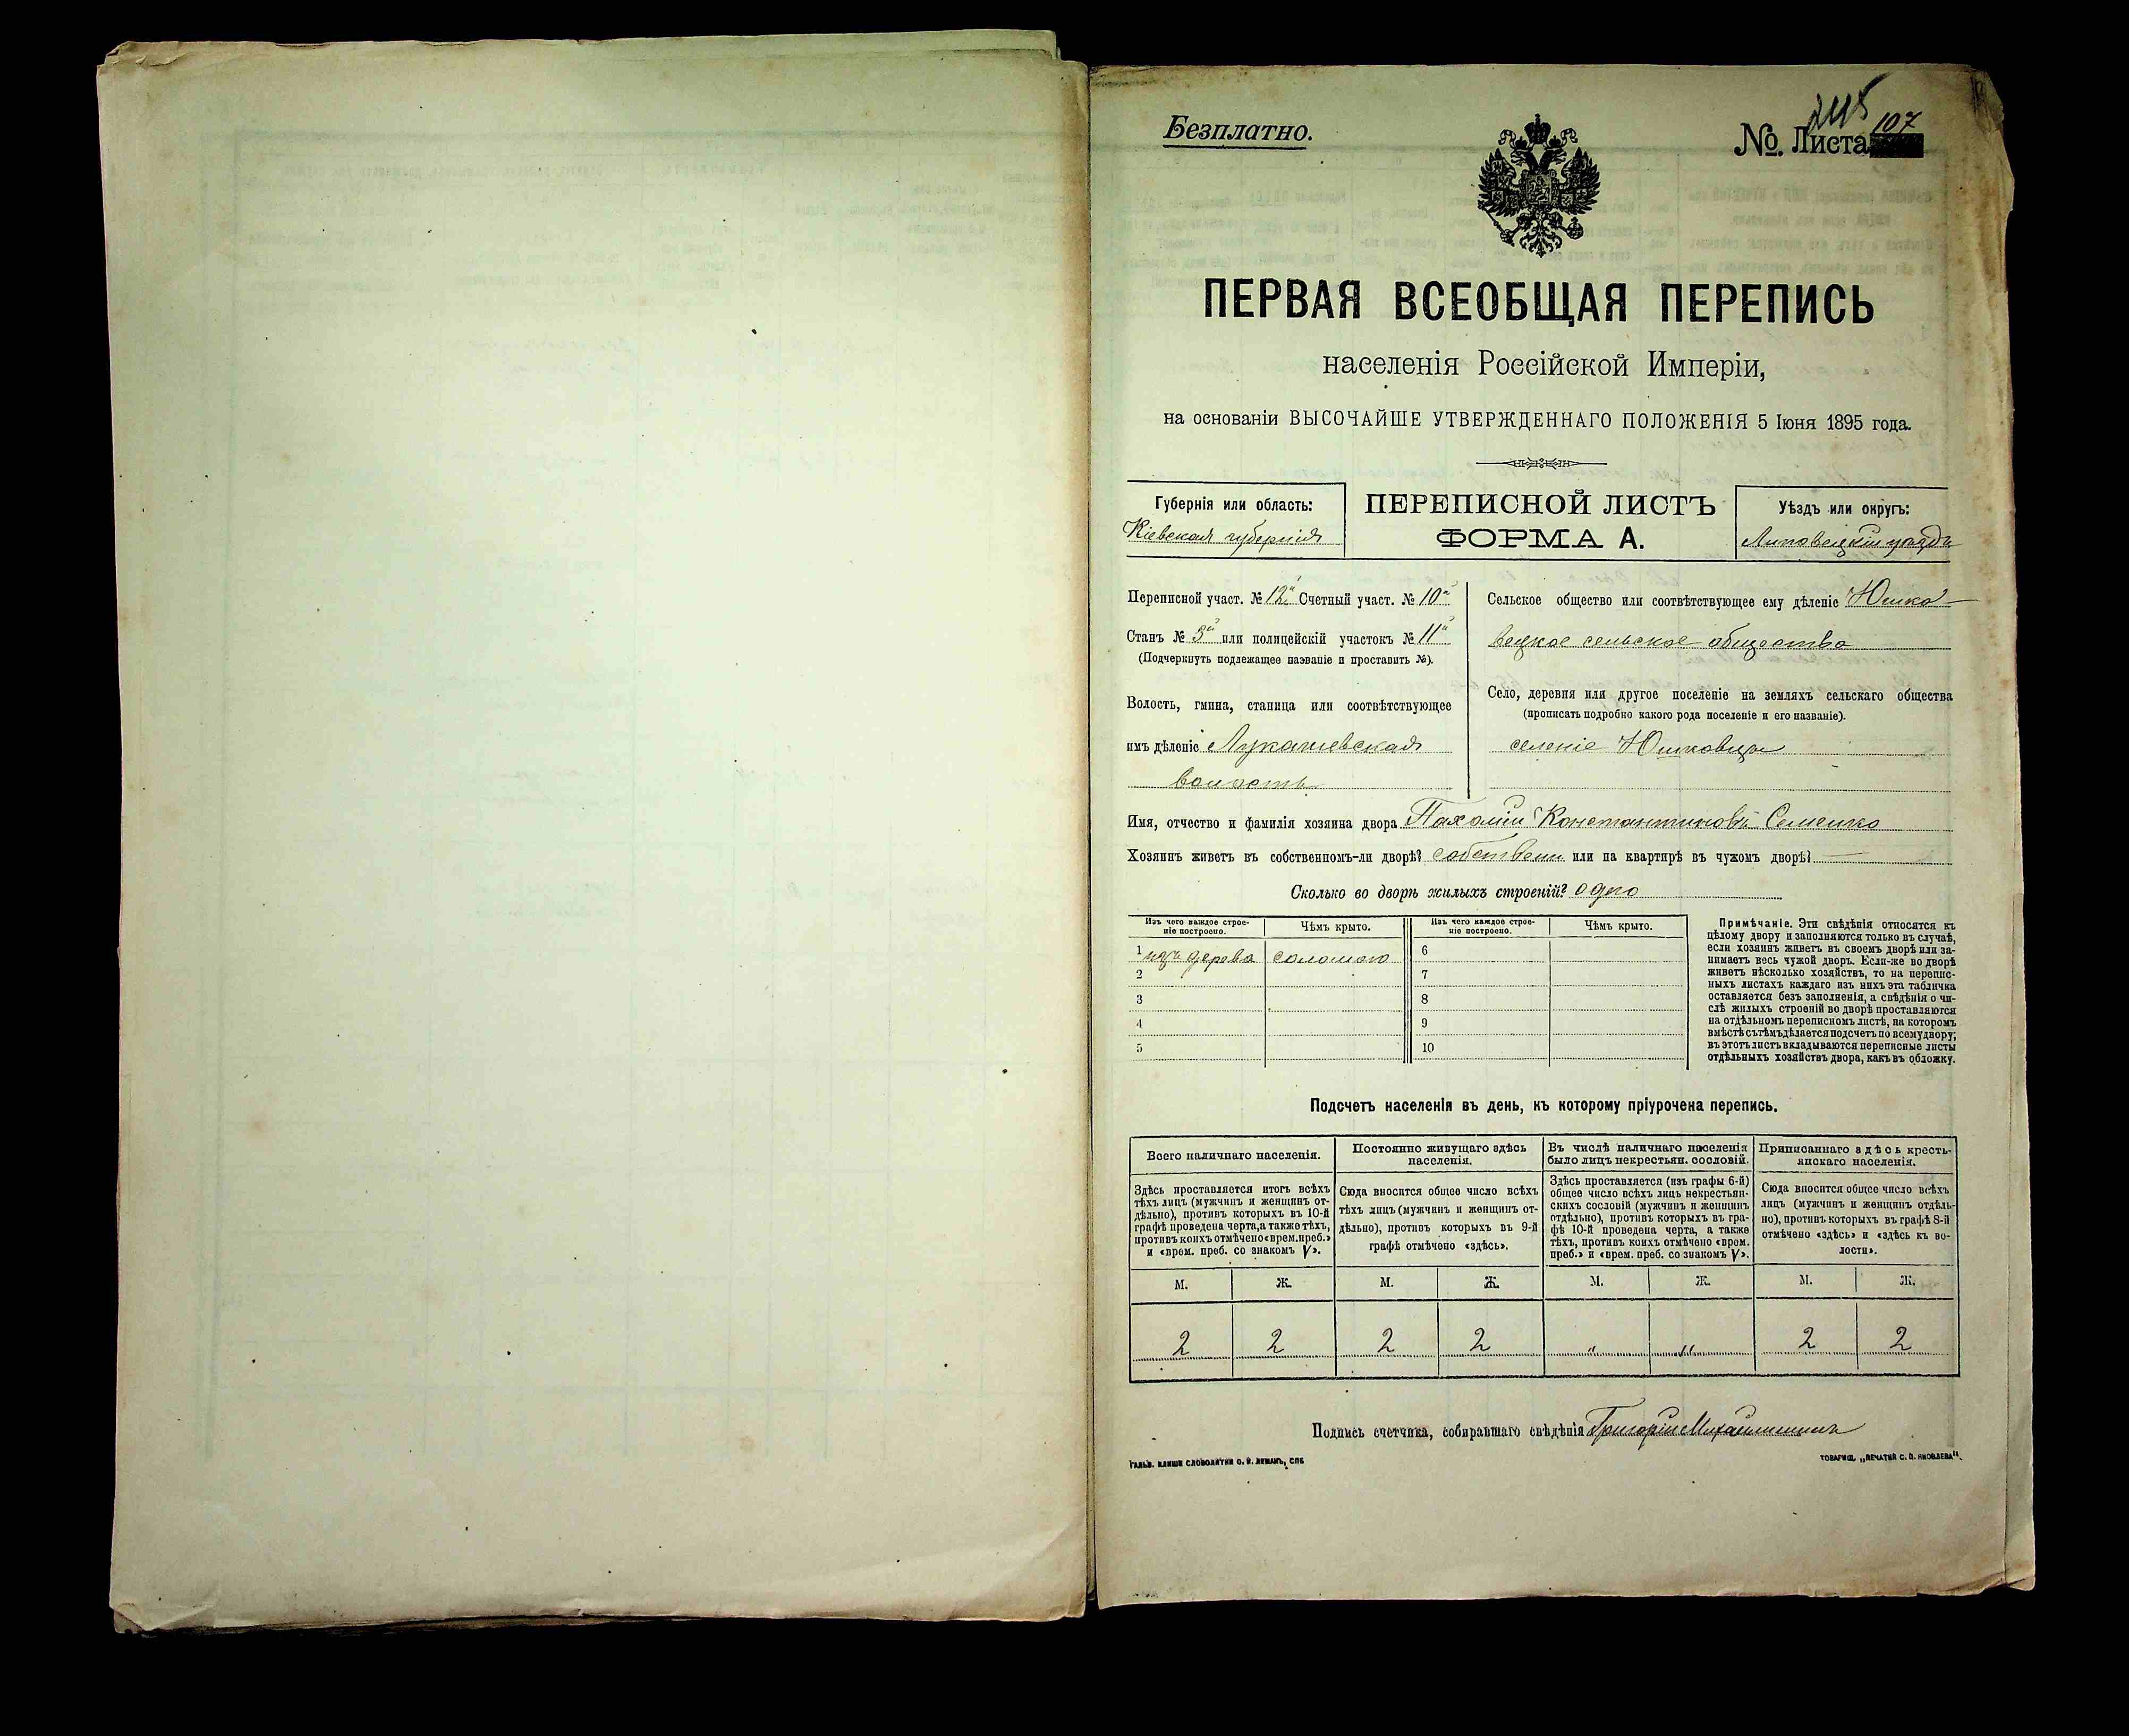 Безплатно.
245
№. Листа 107
ПЕРВАЯ ВСЕОБЩАЯ ПЕРЕПИСЬ
населенія Россійской Имперіи,
на основаніи ВЫСОЧАЙШЕ УТВЕРЖДЕННАГО ПОЛОЖЕНІЯ 5 Іюня 1895 года.
Губернія или область:
Кіевская губернія
ПЕРЕПИСНОЙ ЛИСТЪ
ФОРМА А.
Уѣздъ или округъ:
Липовецкій уѣздъ
Переписной участ. № 12й Счетный участ. № 10й
Станъ № 3й или полицейскій участокъ № 11й
(Подчеркнуть подлежащее названіе и проставить №).
Волость, гмина, станица или соотвѣтствующее
имъ дѣленіе Лукашевская
волость
Сельское общество или соотвѣтствующее ему дѣленіе Юшко-
вецкое сельское общество
Село, деревня или другое поселеніе на земляхъ сельскаго общества
(прописать подробно какого рода поселеніе и его названіе).
селеніе Юшковцы
Имя, отчество и фамилія хозяина двора Пахомій Константиновъ Семенко
Хозяинъ живетъ въ собственномъ-ли дворѣ? собствени или на квартирѣ въ чужомъ дворѣ? —
Сколько во дворѣ жилыхъ строеній? одно
Изъ чего каждое строе-
ніе построено.
Чѣмъ крыто.
Изъ чего каждое строе-
ніе построено.
Чѣмъ крыто.
1 изъ дерева соломою 6
2 7
3 8
4 9
5 10
Примѣчаніе. Эти свѣдѣнія относятся къ
цѣлому двору и заполняются только въ случаѣ,
если хозяинъ живетъ въ своемъ дворѣ или за-
нимаетъ весь чужой дворъ. Если-же во дворѣ
живетъ нѣсколько хозяйствъ, то на перепис-
ныхъ листахъ каждаго изъ нихъ эта табличка
оставляется безъ заполненія, а свѣдѣнія о чи-
слѣ жилыхъ строеній во дворѣ проставляются
на отдѣльномъ переписномъ листѣ, на которомъ
вмѣстѣ съ тѣмъ дѣлается подсчетъ по всему двору;
въ этотъ листъ вкладываются переписные листы
отдѣльныхъ хозяйствъ двора, какъ въ обложку.
Подсчетъ населенія въ день, къ которому пріурочена перепись.
Всего наличнаго населенія.
Здѣсь проставляется итогъ всѣхъ
тѣхъ лицъ (мужчинъ и женщинъ от-
дѣльно), противъ которыхъ въ 10-й
графѣ проведена черта, а также тѣхъ,
противъ коихъ отмѣчено «врем. преб.»
и «врем. преб. со знакомъ V».
Постоянно живущаго здѣсь
населенія.
Сюда вносится общее число всѣхъ
тѣхъ лицъ (мужчинъ и женщинъ от-
дѣльно), противъ которыхъ въ 9-й
графѣ отмѣчено «здѣсь».
Въ числѣ наличнаго населенія
было лицъ некрестьян. сословій.
Здѣсь проставляется (изъ графы 6-й)
общее число всѣхъ лицъ некрестьян-
скихъ сословій (мужчинъ и женщинъ
отдѣльно), противъ которыхъ въ гра-
фѣ 10-й проведена черта, а также
тѣхъ, противъ коихъ отмѣчено «врем.
преб.» и «врем. преб. со знакомъ V».
Приписаннаго здѣсь кресть-
янскаго населенія.
Сюда вносится общее число всѣхъ
лицъ (мужчинъ и женщинъ отдѣль-
но), противъ которыхъ въ графѣ 8-й
отмѣчено «здѣсь» и «здѣсь къ во-
лости».
М. Ж. М. Ж. М. Ж. М. Ж.
2 2 2 2 " " 2 2
Подпись счетчика, собиравшаго свѣдѣнія Григорій
ГАЛЬВ. КЛИШЕ СЛОВОЛИТНИ О. И. ЛЕМАНЪ, СПБ
ТОВАРИЩ. „ПЕЧАТНЯ С. П. ЯКОВЛЕВА".